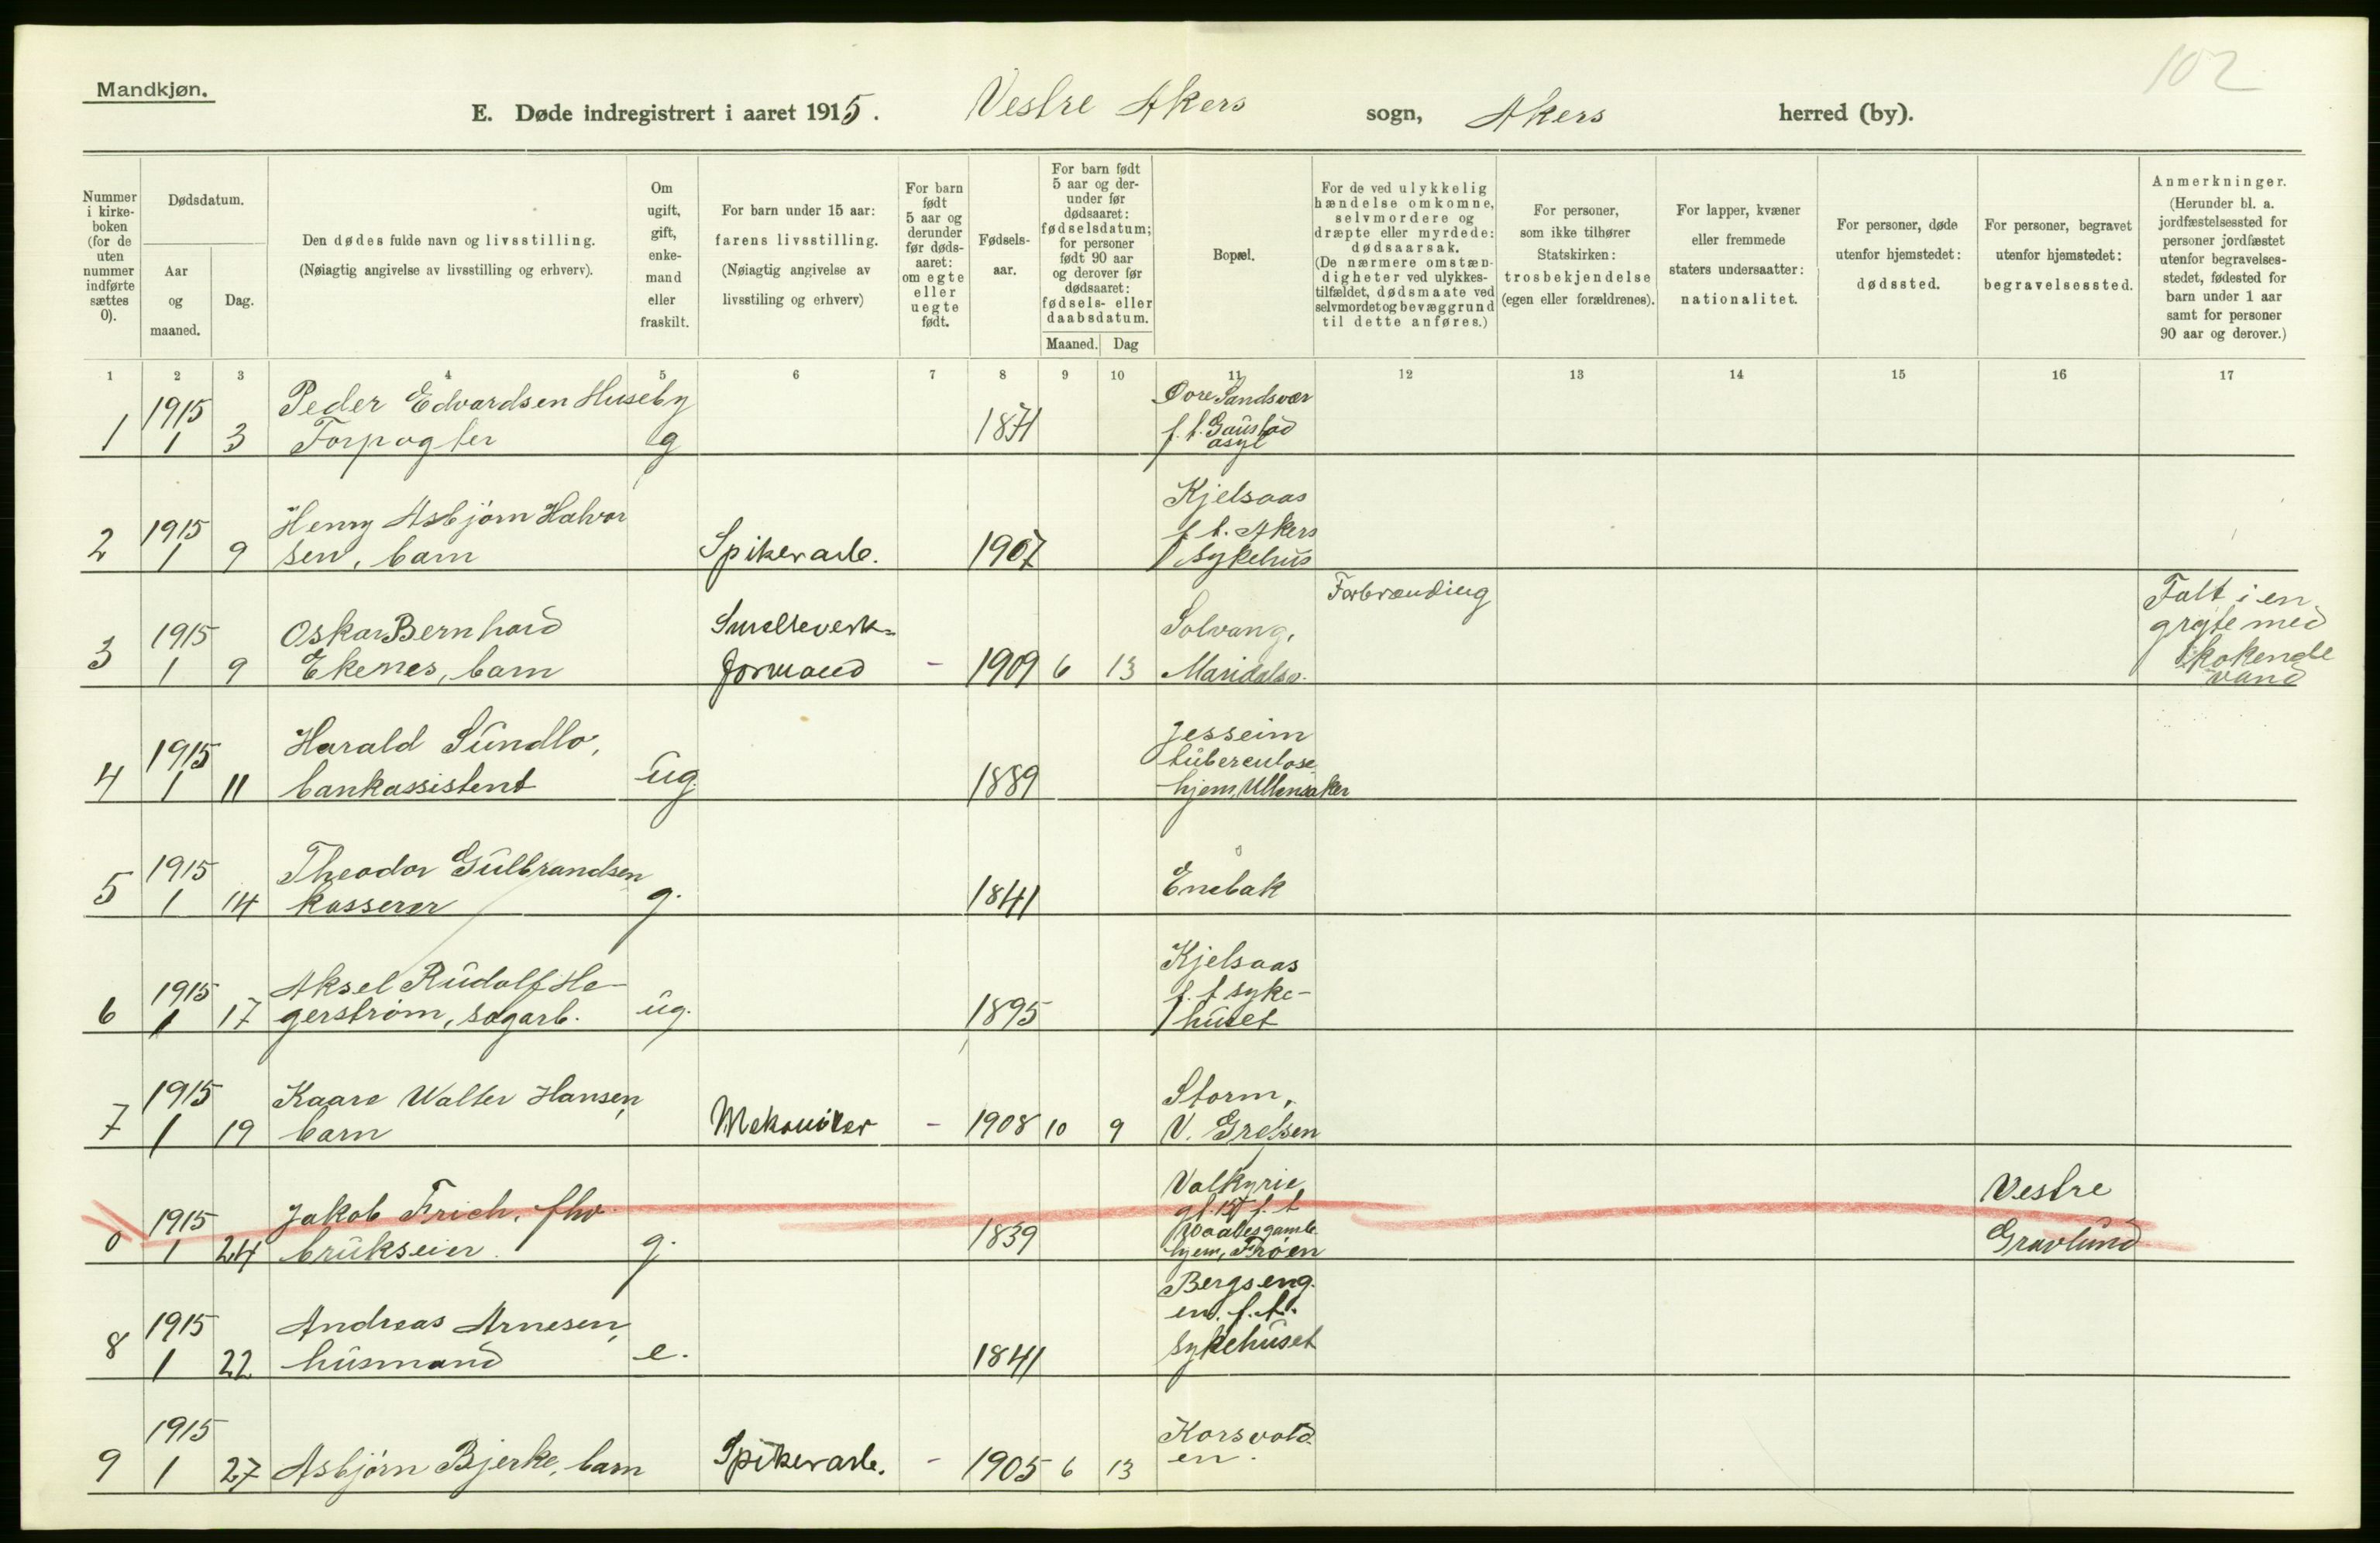 102
Mandkjøn.
E. Døde indregistrert i aaret 1915. Vestre Akers sogn, Akers herred (by).
Nummer i kirkeboken (for de uten nummer indførte sættes 0).
Dødsdatum.
Aar og maaned.
Dag.
Den dødes fulde navn og livsstilling.
(Nøiagtig angivelse av livsstilling og erhverv).
Om ugift, gift, enkemand eller fraskilt.
For barn under 15 aar: farens livsstilling.
(Nøiagtig angivelse av livsstiling og erhverv)
For barn født 5 aar og derunder før dødsaaret: om egte eller uegte født.
Fødselsaar.
For barn født 5 aar og derunder før dødsaaret: fødselsdatum; for personer født 90 aar og derover før dødsaaret: fødsels- eller daabsdatum.
Maaned. Dag
Bopæl.
For de ved ulykkelig hændelse omkomne, selvmordere og dræpte eller myrdede: dødsaarsak.
(De nærmere omstændigheter ved ulykkestilfældet, dødsmaate ved selvmordet og bevæggrund til dette anføres.)
For personer, som ikke tilhører Statskirken: trosbekjendelse (egen eller forældrenes).
For lapper, kvæner eller fremmede staters undersaatter: nationalitet.
For personer, døde utenfor hjemstedet: dødssted.
For personer, begravet utenfor hjemstedet: begravelsessted.
Anmerkninger.
(Herunder bl. a. jordfæstelsessted for personer jordfæstet utenfor begravelsesstedet, fødested for barn under 1 aar samt for personer 90 aar og derover.)
1 2 3 4 5 6 7 8 9 10 11 12 13 14 15 16 17
1915 Peder Edvardsen Huseby Øvre Sandsvær
1 1 3 Forpagter g 1871 f. t. Gaustad
asyl
Kjelsaas
1915 Henry Asbjørn Halvor f. t. Akers
2 1 9 sen, barn Spikerarb. 1907 sykehus
Forbrænding Falt i en
1915 Oskar Bernhard Smelteverk- Solvang, gryte med
3 1 9 Ekenes, barn formand - 1909 6 13 Maridalsv. kokende
vand
Jesseim
1915 Harald Sundlo, tuberculose
4 1 11 bankassistent ug. 1889 hjem, Ullensaker
1915 Theodor Gulbrandsen
5 1 14 kasserer g. 1841 Enebak
Kjelsaas
1915 Aksel Rudolf Ha- f. t. syke-
6 1 17 gerstrøm, sagarb. ug. 1895 huset
1915 Kaare Walter Hansen, Storm,
7 1 19 barn Mekaniker - 1908 10 9 V. Grefsen
Valkyrie Vestre
1915 Jakob Frich, fhv. f. t
0 1 24 brukseier. g. 1839 gamle Gravlund
hjem, Frøen
Bergseng.
1915 Andreas Arnesen, en. f. t.
8 1 22 husmand e. 1841 sykehuset
1915 Korsvold
9 1 27 Asbjørn Bjerke, barn Spikerarb. - 1905 6 13 en.